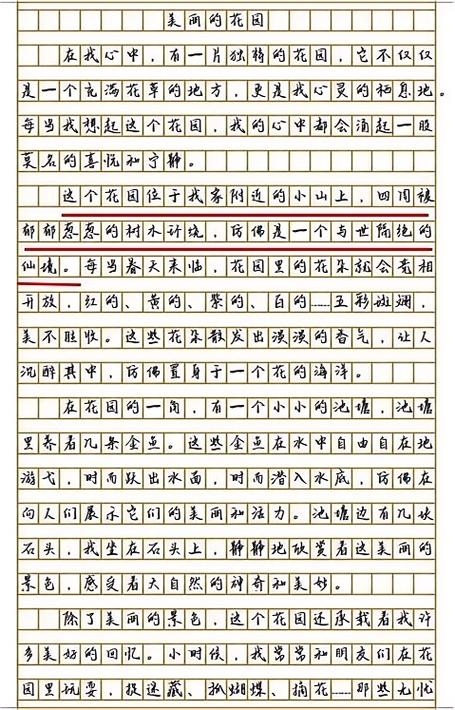 美丽的花园
在我心中，有一片独特的花园，它不仅仅
是一个充满花草的地方，更是我心灵的栖息地。
每当我想起这个花园，我的心中都会涌起一股
莫名的喜悦和宁静。
这个花园位于我家附近的小山上，四周被
郁郁葱葱的树木环绕，仿佛是一个与世隔绝的
仙境。每当春天来临，花园里的花朵就会竞相
开放，红的、黄的、紫的、白的……五彩斑斓，
美不胜收。这些花朵散发出淡淡的香气，让人
沉醉其中，仿佛置身于一个花的海洋。
在花园的一角，有一个小小的池塘，池塘
里养着几条金鱼。这些金鱼在水中自由自在地
游弋，时而跃出水面，时而潜入水底，仿佛在
向人们展示它们的美丽和活力。池塘边有几块
石头，我坐在石头上，静静地欣赏着这美丽的
景色，感受着大自然的神奇和美妙。
除了美丽的景色，这个花园还承载着我许
多美好的回忆。小时候，我常常和朋友们在花
园里玩耍，捉迷藏、抓蝴蝶、摘花……那些无忧